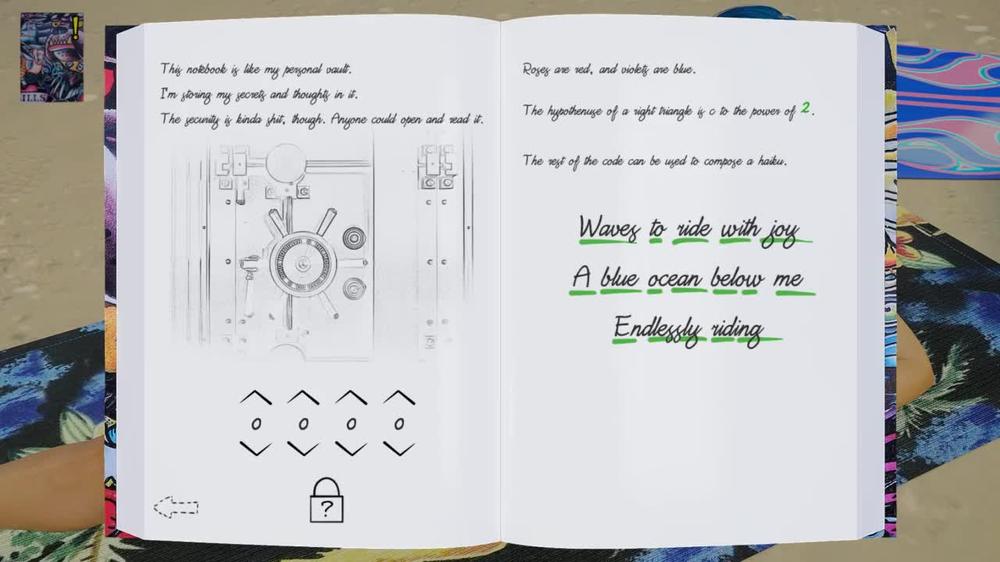 ILLS
!
This notebook is like my personal vault.
I'm storing my secrets and thoughts in it.
The security is kinda shit, though. Anyone could open and read it.
0 0 0 0
?
Roses are red, and violets are blue.
The hypothenuse of a right triangle is c to the power of 2.
The rest of the code can be used to compose a haiku.
Waves to ride with joy
A blue ocean below me
Endlessly riding